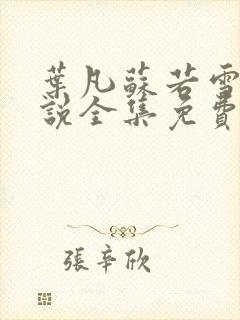 葉凡蘇若雪
說全集免費
張辛欣